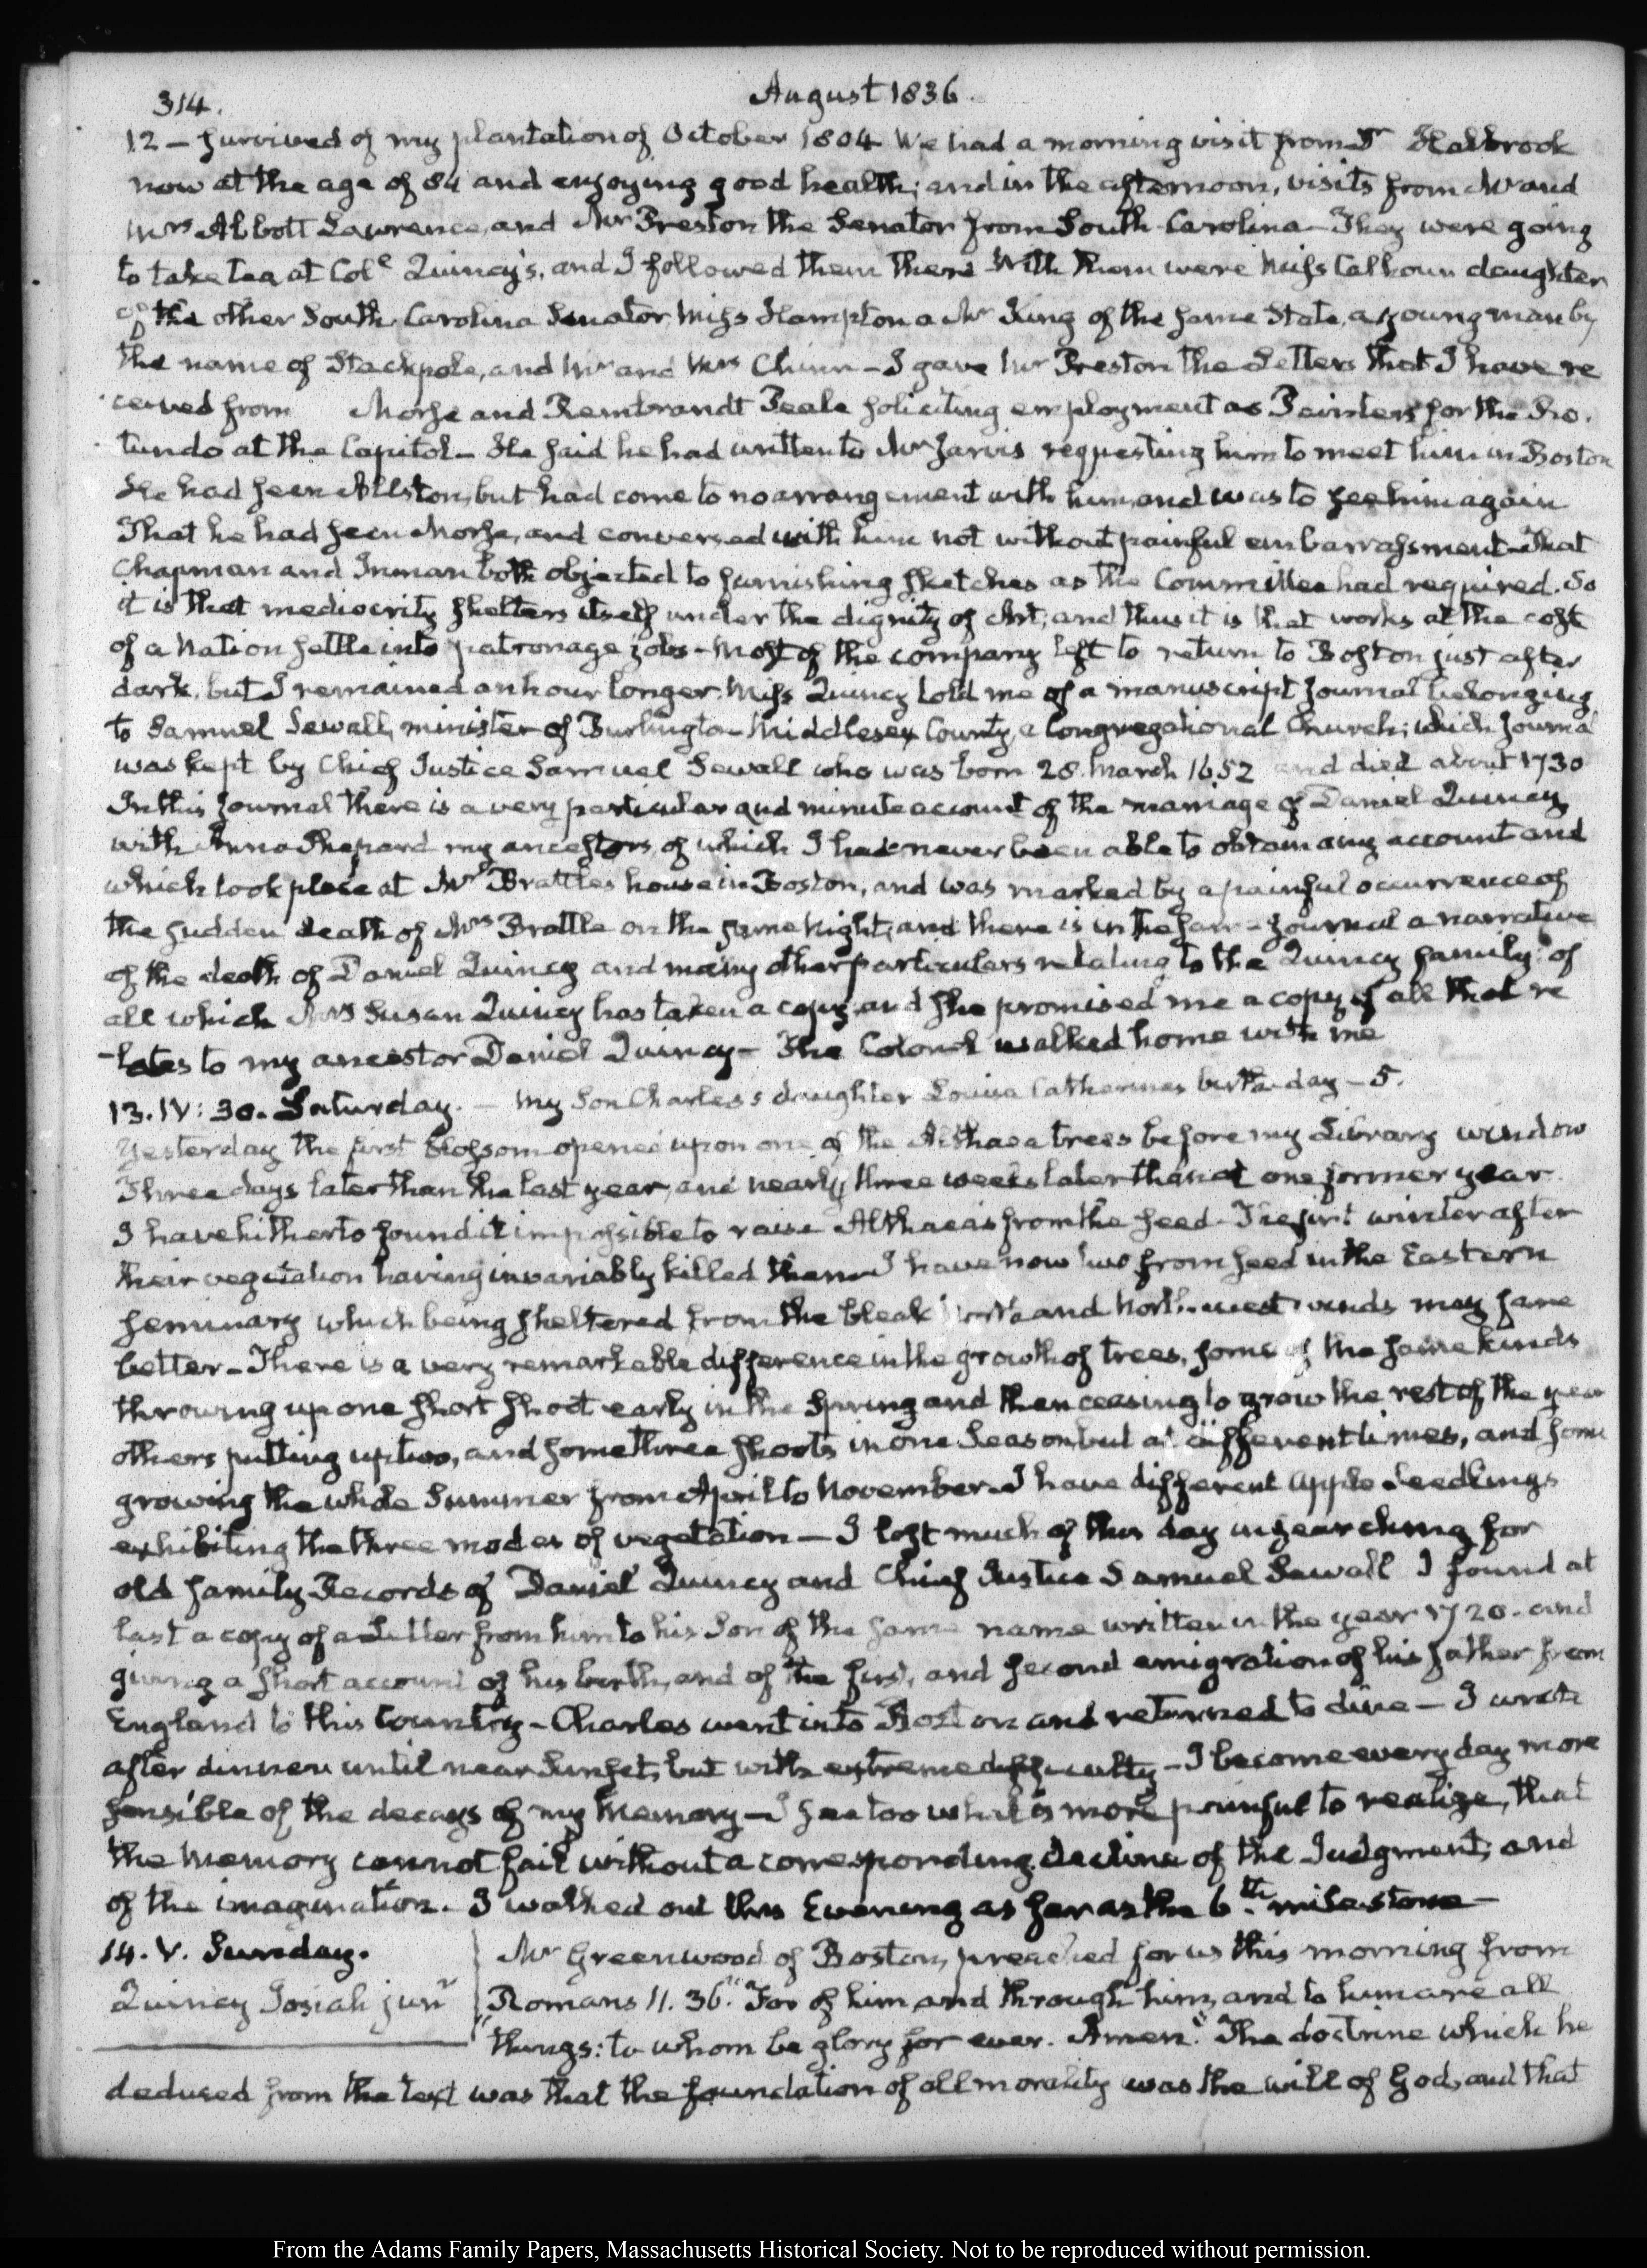 314.
August 1836.
12 — survived of my plantation of October 1804 We had a morning visit from Dr Holbrook
now at the age of 84 and enjoying good health; and in the afternoon, visits from Mr and
Mrs Abbott Lawrence, and Mr Preston the Senator from South Carolina — They were going
to take tea at Cole Quincy's, and I followed them there — With them were Miss Calhoun daughter
of the other South Carolina Senator, Miss Hampton a Mr King of the same State, a young man by
the name of Stackpole, and Mr and Mrs Chinn — I gave Mr Preston the Letters that I have re
ceived from Morse and Rembrandt Peale soliciting employment as Painters for the Ro.
tundo at the Capitol — He said he had written to Mr Jarvis requesting him to meet him in Boston
He had seen Allston, but had come to no arrangement with him, and was to see him again
That he had seen Morse, and conversed with him not without painful embarrassment — That
Chapman and Inman both objected to furnishing sketches as the Committee had required. So
it is that mediocrity shelters itself under the dignity of Art; and thus it is that works at the cost
of a Nation settle into patronage jobs — Most of the company left to return to Boston just after
dark, but I remained an hour longer. Miss Quincy told me of a manuscript journal belonging
to Samuel Sewall, minister of Burlington Middlesex County, a Congregational Church; which journal
was kept by Chief Justice Samuel Sewall who was born 28 March 1652 and died about 1730
In this journal there is a very particular and minute account of the marriage of Daniel Quincy
with Anna Shepard my ancestors, of which I had never been able to obtain any account and
which took place at Mrs Brattle's house in Boston, and was marked by a painful occurrence of
the sudden death of Mrs Brattle on the same Night; and there is in the same journal a narrative
of the death of Daniel Quincy and many other particulars relating to the Quincy family: of
all which Miss Susan Quincy has taken a copy, and she promised me a copy of all that re
-lates to my ancestor Daniel Quincy — The Colonel walked home with me
13. IV: 30. Saturday. — My Son Charles's daughter Louisa Catherine's birth-day — 5.
Yesterday the first blossom opened upon one of the Althaea trees before my Library window
Three days later than the last year, and nearly three weeks later than at one former year
I have hitherto found it impossible to raise Althaeas from the seed — The first winter after
their vegetation having invariably killed them — I have now two from seed in the Eastern
seminary which being sheltered from the bleak North and North-west winds may fare
better — There is a very remarkable difference in the growth of trees, some of the same kinds
throwing up one short shoot early in the Spring and then ceasing to grow the rest of the year
others putting up two, and some three shoots in one Season, but at different times, and some
growing the whole Summer from April to November. I have different apple Seedlings
exhibiting the three modes of vegetation — I lost much of this day in searching for
old family Records of Daniel Quincy and Chief Justice Samuel Sewall I found at
last a copy of a Letter from him to his Son of the same name written in the year 1720. and
giving a short account of his birth, and of the first, and second emigration of his father from
England to this Country — Charles went into Boston and returned to dine — I wrote
after dinner until near Sunset, but with extreme difficulty — I become every day more
sensible of the decays of my Memory — I see too what is more painful to realize, that
the Memory cannot fail without a corresponding decline of the Judgment, and
of the imagination. I walked out this Evening as far as the 6th. mile stone —
14. V. Sunday.
Quincy Josiah junr
Mr Greenwood of Boston, preached for us this morning from
Romans 11. 36. "For of him, and through him, and to him are all
"things: to whom be glory for ever. Amen." The doctrine which he
deduced from the text was that the foundation of all morality was the will of God, and that
From the Adams Family Papers, Massachusetts Historical Society. Not to be reproduced without permission.